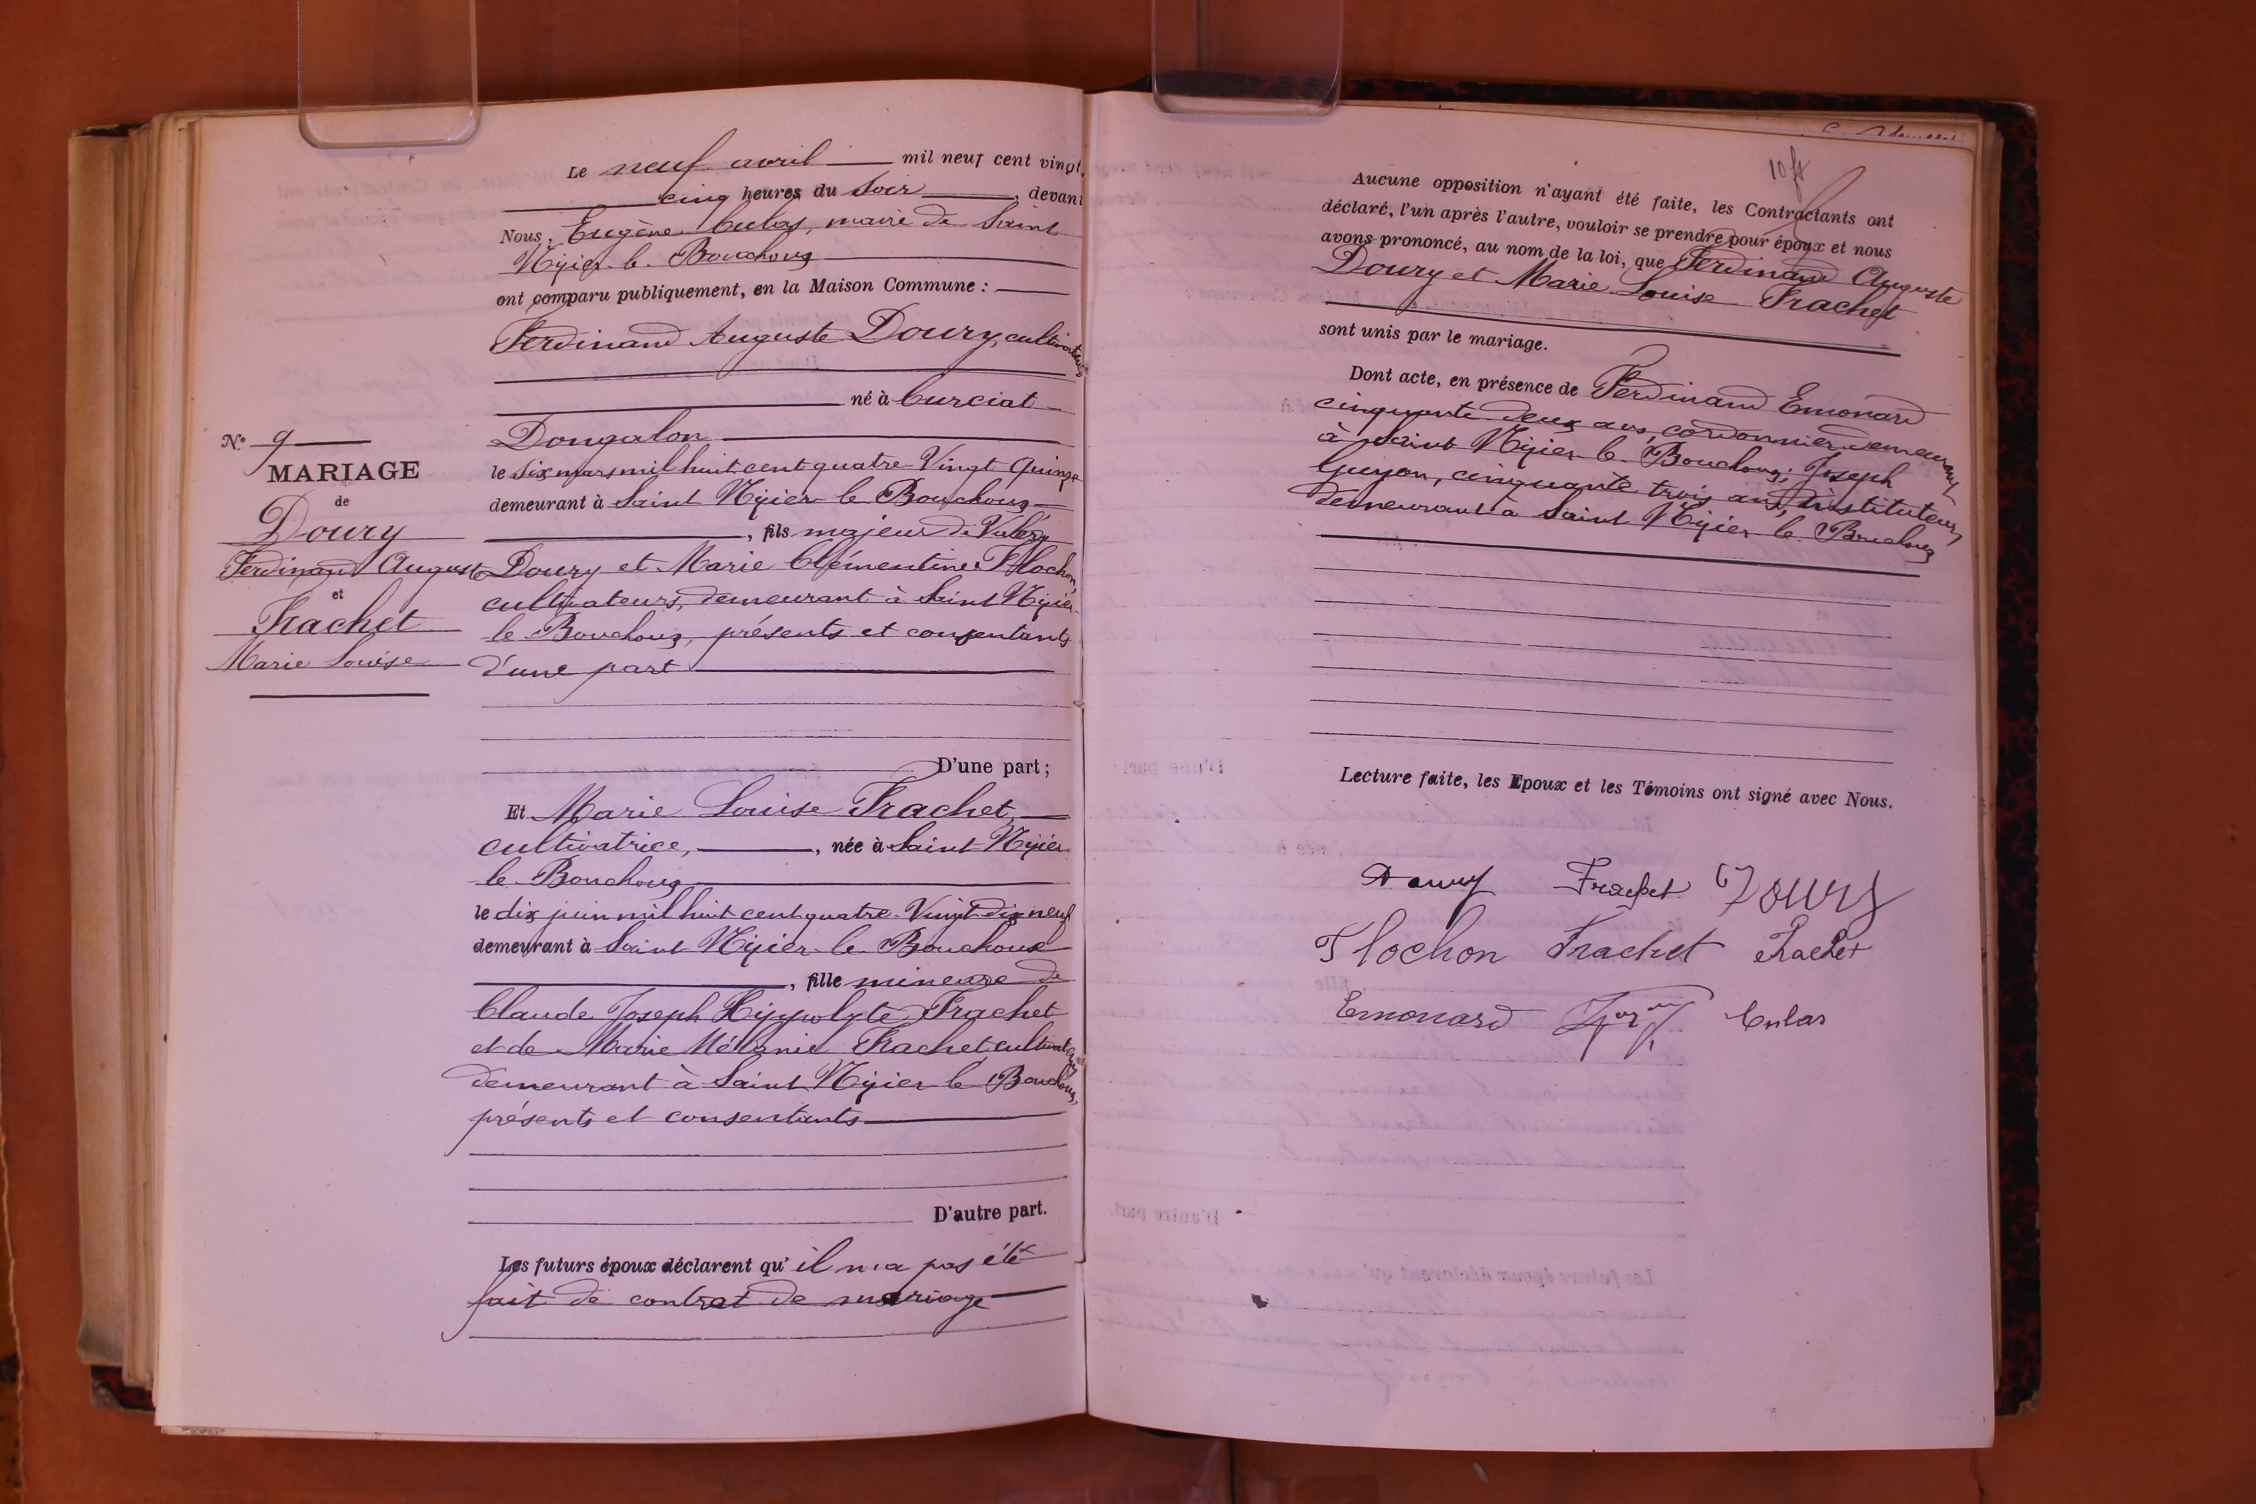 Le neuf avril mil neuf cent vingt,
cinq heures du soir, devant
Nous, Eugène Culas, maire de Saint
Nizier le Bouchoux
ont comparu publiquement, en la Maison Commune :
Ferdinand Auguste Doury, cultivateur,
né à Curciat
Dongalon
le six mars mil huit cent quatre Vingt Quinze
demeurant à Saint Nizier le Bouchoux
, fils majeur de Valéry
Doury et Marie Clémentine Flochon,
cultivateurs, demeurant à Saint Nizier
le Bouchoux, présents et consentants
d'une part
D'une part ;
Et Marie Louise Frachet,
cultivatrice, , née à Saint Nizier
le Bouchoux
le dix juin mil huit cent quatre Vingt dix neuf
demeurant à Saint Nizier le Bouchoux
, fille mineure de
Claude Joseph Hippolyte Frachet
et de Marie Mélanie Frachet, cultivateurs
demeurant à Saint Nizier le Bouchoux,
présents et consentants
D'autre part.
Les futurs époux déclarent qu'il n'a pas été
fait de contrat de mariage
N° 9
MARIAGE
de
Doury
Ferdinand Auguste
et
Frachet
Marie Louise
Aucune opposition n'ayant été faite, les Contractants ont
déclaré, l'un après l'autre, vouloir se prendre pour époux et nous
avons prononcé, au nom de la loi, que Ferdinand Auguste
Doury et Marie Louise Frachet
sont unis par le mariage.
Dont acte, en présence de Ferdinand Emonard
cinquante deux ans, cordonnier demeurant
à Saint Nizier le Bouchoux; Joseph
Guyon, cinquante trois ans, instituteur,
demeurant à Saint Nizier le Bouchoux
Lecture faite, les Epoux et les Témoins ont signé avec Nous.
Doury Frachet Doury
Flochon Frachet Frachet
Emonard Culas